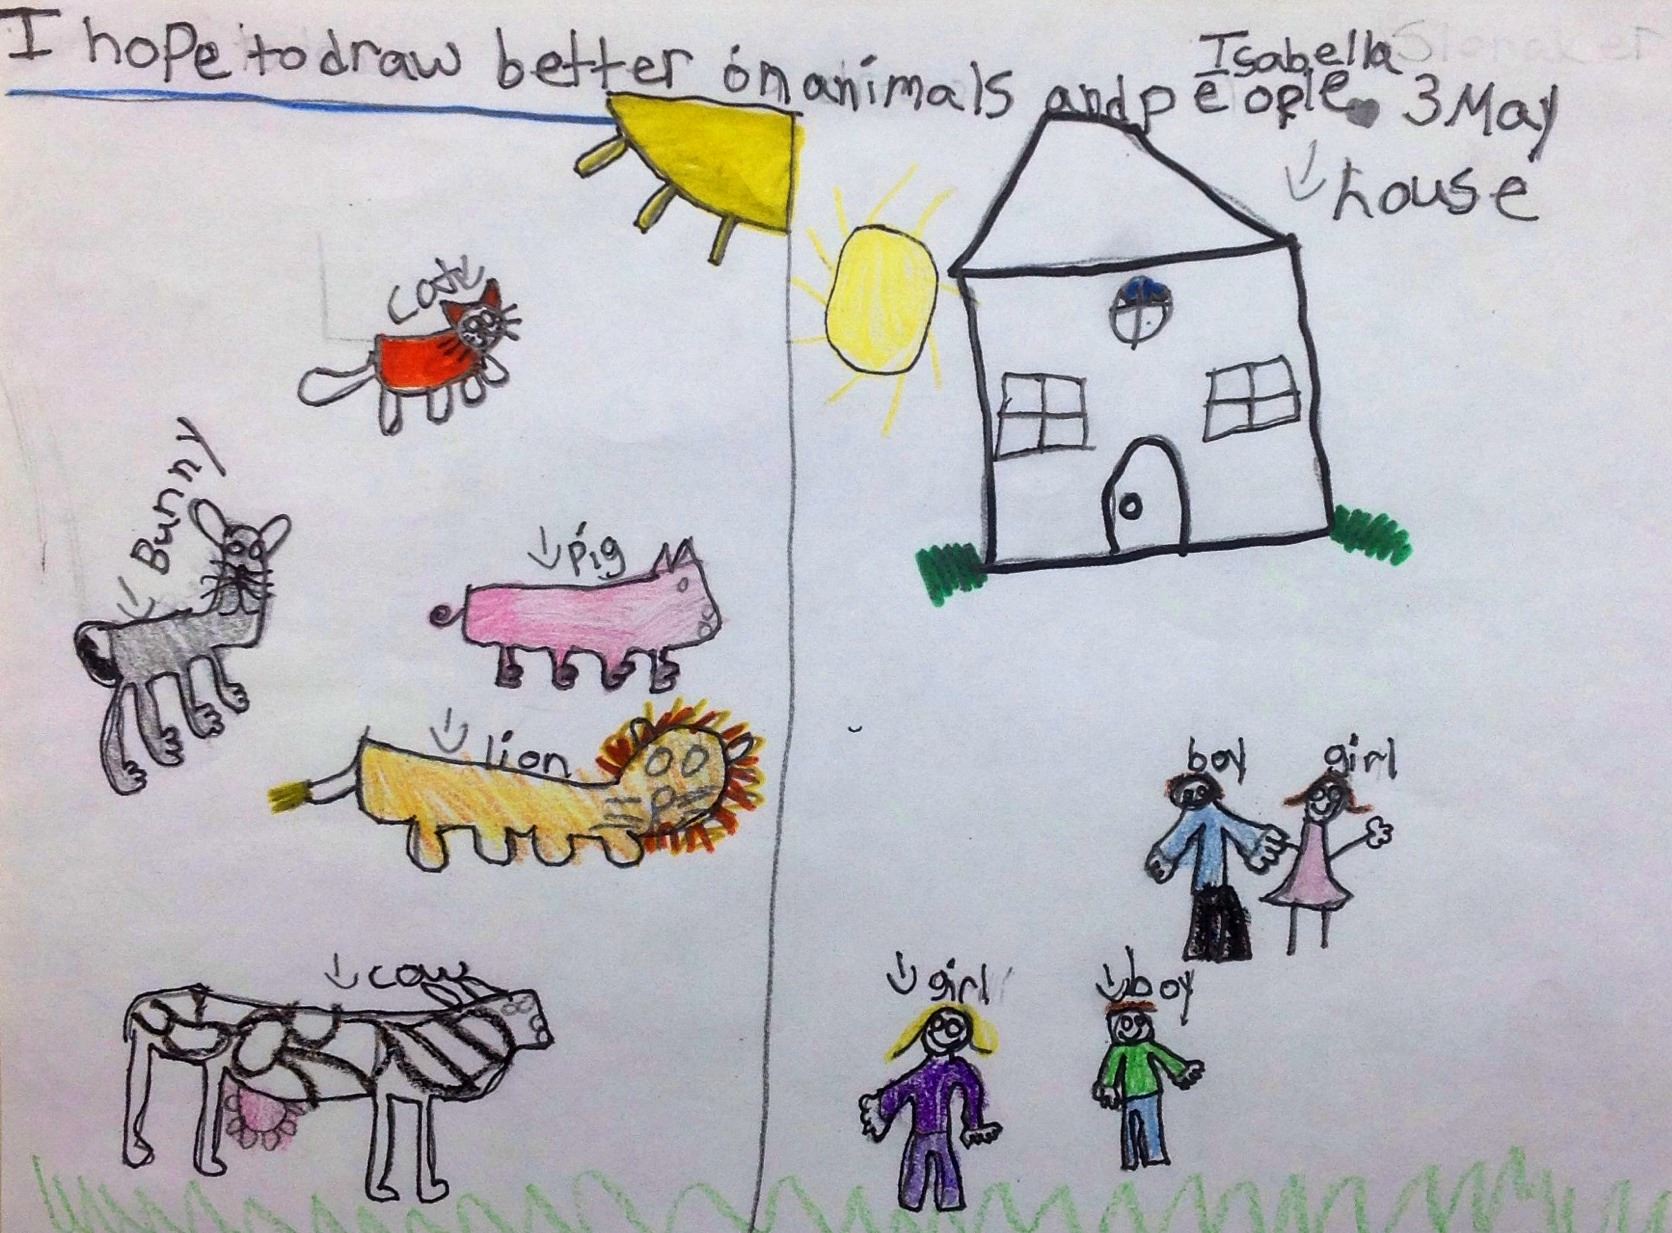 Isabella
I hope to draw better on animals and people. 3 May
house
cat
Bunny
pig
lion
boy
girl
cow
girl
boy